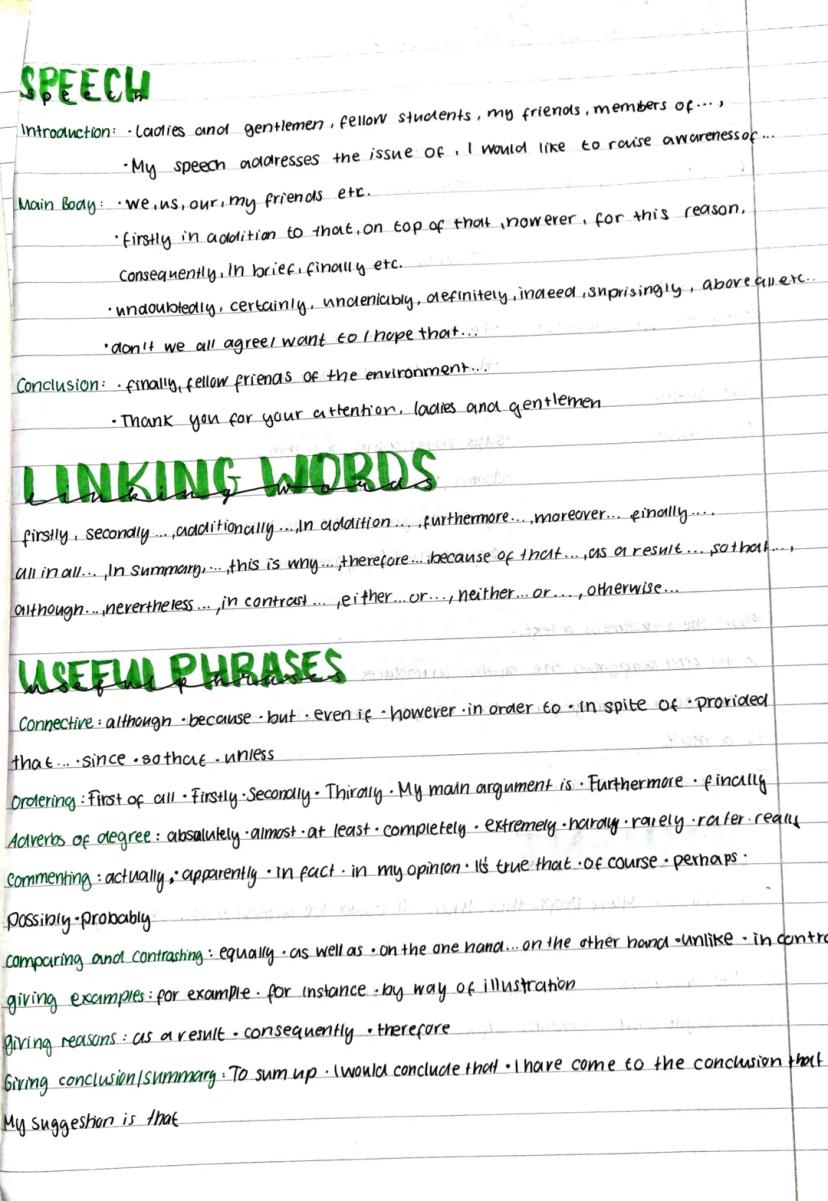 SPEECH
speech
Introduction: · Ladies and gentlemen, fellow students, my friends, members of...,
· My speech addresses the issue of, I would like to raise awareness of...
Main Body: · we, us, our, my friends etc.
· firstly in addition to that, on top of that, however, for this reason,
consequently, In brief, finally etc.
· undoubtedly, certainly, undeniably, definitely, indeed, snprisingly, above all etc..
· don't we all agree/ want to/ hope that...
Conclusion: · finally, fellow friends of the environment...
· Thank you for your attention, ladies and gentlemen
LINKING WORDS
linking words
firstly, secondly..., additionally..., In addition..., furthermore..., moreover... finally....
all in all..., In summary,..., this is why..., therefore..., because of that..., as a result..., so that...,
although..., nevertheless..., in contrast..., either...or..., neither...or..., otherwise...
USEFUL PHRASES
useful phrases
Connective: although · because · but · even if · however · in order to · in spite of · provided
that... · since · so that · unless
Ordering: First of all · Firstly · Secondly · Thirdly · My main argument is · Furthermore · finally
Adverbs of degree: absolutely · almost · at least · completely · extremely · hardly · rarely · rater · really
Commenting: actually, · apparently · in fact · in my opinion · It's true that · of course · perhaps ·
Possibly · probably
Comparing and contrasting: equally · as well as · on the one hand... on the other hand · unlike · in contra
giving examples: for example · for instance · by way of illustration
giving reasons: as a result · consequently · therefore
Giving conclusion/summary: To sum up · I would conclude that · I have come to the conclusion that
My suggestion is that